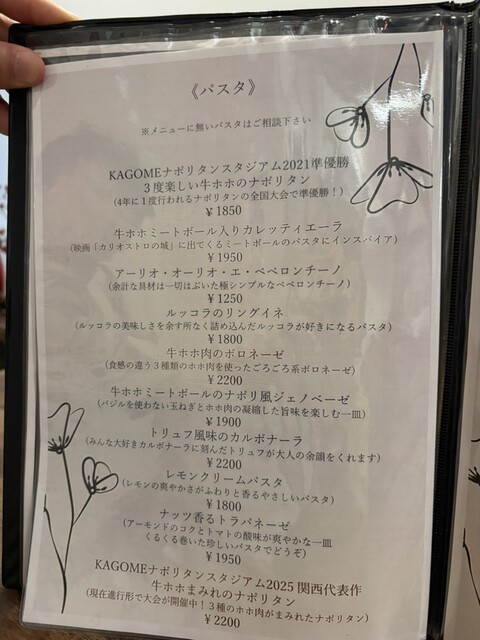 《パスタ》
※メニューに無いパスタはご相談下さい
KAGOMEナポリタンスタジアム2021準優勝
３度楽しい牛ホホのナポリタン
(4年に１度行われるナポリタンの全国大会で準優勝！)
¥1850
牛ホホミートボール入りカレッティエーラ
(映画「カリオストロの城」に出てくるミートボールのパスタにインスパイア)
¥1950
アーリオ・オーリオ・エ・ペペロンチーノ
(余計な具材は一切はぶいた極シンプルなペペロンチーノ)
¥1250
ルッコラのリングイネ
(ルッコラの美味しさを余す所なく詰め込んだルッコラが好きになるパスタ)
¥1800
牛ホホ肉のボロネーゼ
(食感の違う３種類のホホ肉を使ったごろごろ系ボロネーゼ)
¥2200
牛ホホミートボールのナポリ風ジェノベーゼ
(バジルを使わない玉ねぎとホホ肉の凝縮した旨味を楽しむ一皿)
¥1900
トリュフ風味のカルボナーラ
(みんな大好きカルボナーラに刻んだトリュフが大人の余韻をくれます)
¥2200
レモンクリームパスタ
(レモンの爽やかさがふわりと香るやさしいパスタ)
¥1800
ナッツ香るトラパネーゼ
(アーモンドのコクとトマトの酸味が爽やかな一皿
くるくる巻いた珍しいパスタでどうぞ)
¥1950
KAGOMEナポリタンスタジアム2025 関西代表作
牛ホホまみれのナポリタン
(現在進行形で大会が開催中！３種のホホ肉がまみれたナポリタン)
¥2200